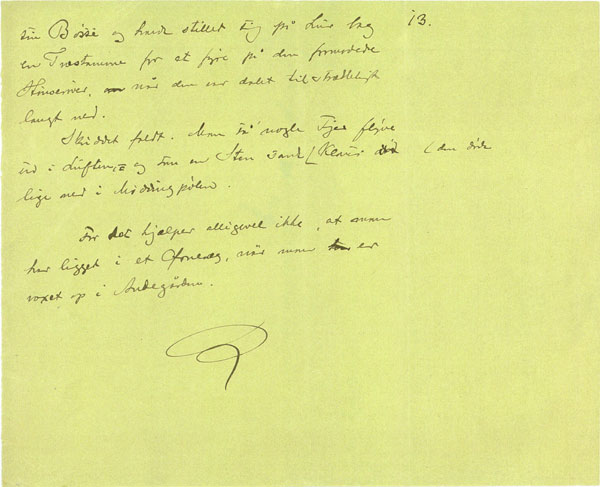 13.
sin Bøsse og havde stillet sig på Lur bag
en Træstamme for at fyre på den formodede
Hønserøver, når den var dalet tilstrækkeligt
langt ned.
Skuddet faldt. Man så nogle Fjer flyve
ud i Luften, og som en Sten sank Klavs (den døde
lige ned i Møddingpølen.
For det hjælper alligevel ikke, at man
har ligget i et Ørneæg, når man er
voxet op i Andegården.